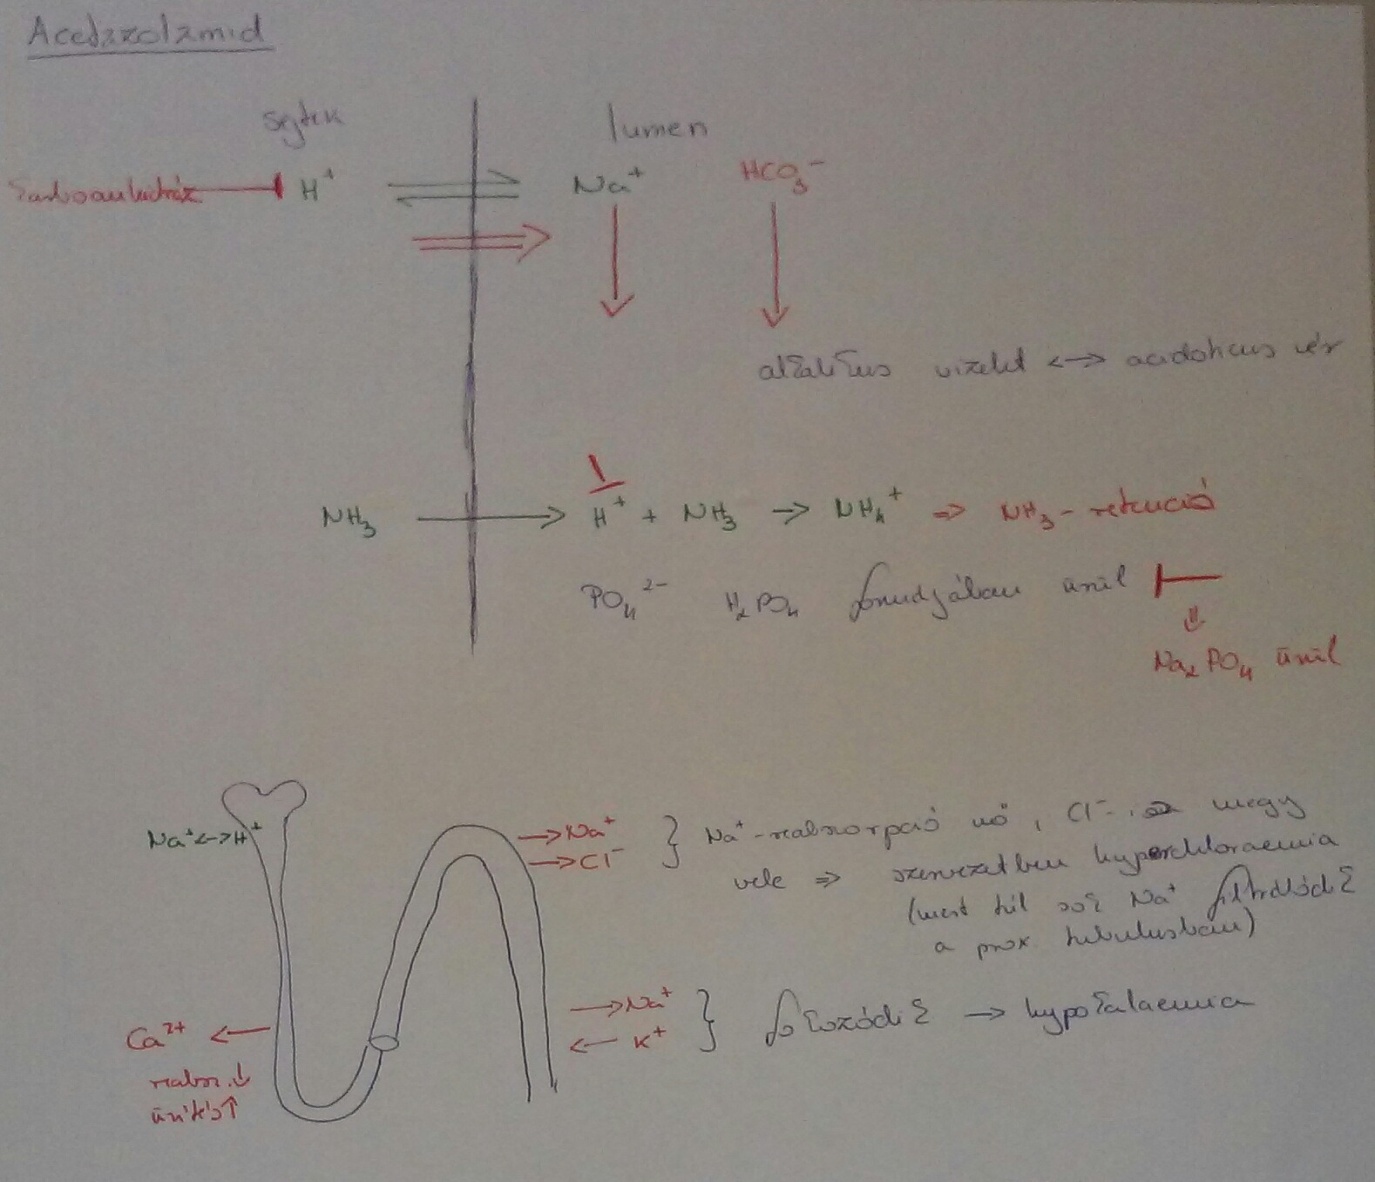 Acetazolamid
sejtek
lumen
Karboanhidráz H⁺ Na⁺ HCO₃⁻
alkalikus vizelet <-> acidotikus vér
NH₃ → H⁺ + NH₃ → NH₄⁺ ⇒ NH₃-retenció
PO₄²⁻ H₂PO₄ formájában ürül
⇓
Na₂PO₄ ürül
Na⁺<->H⁺
→Na⁺
→Cl⁻
} Na⁺-reabszorpció nő, Cl⁻ is megy
vele ⇒ szervezetben hyperchloraemia
(mert túl sok Na⁺ filtrálódik
a prox tubulusban)
Ca²⁺ ←
reabsz.↓
ürítés↑
→Na⁺
← K⁺
} fokozódik → hypokalaemia